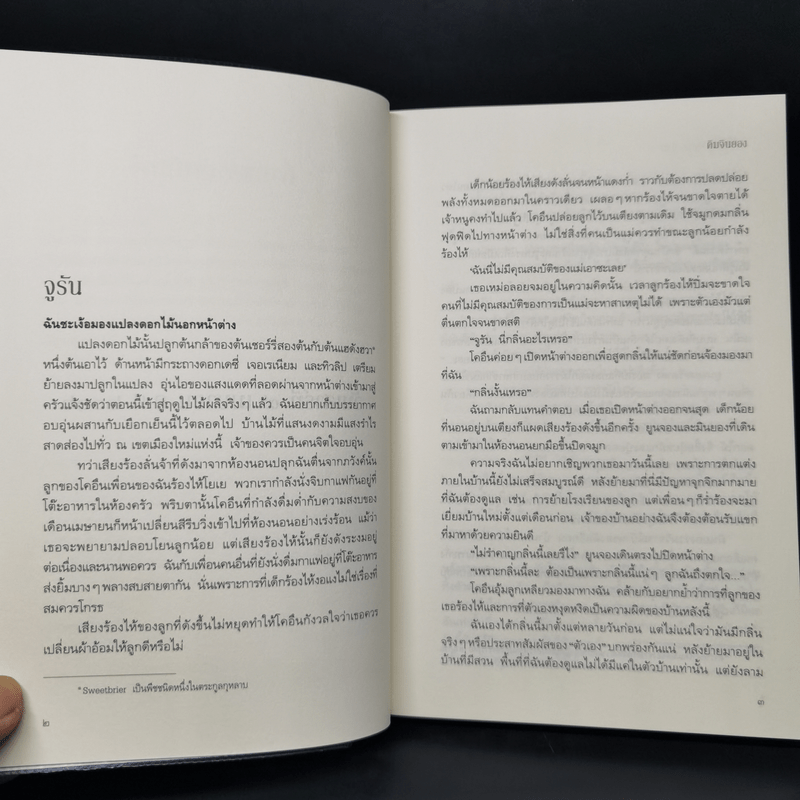 จูรัน
ฉันชะเง้อมองแปลงดอกไม้นอกหน้าต่าง
แปลงดอกไม้นั้นปลูกต้นกล้าของต้นเชอร์รี่สองต้นกับต้นแฮดังฮวา*
หนึ่งต้นเอาไว้ ด้านหน้ามีกระถางดอกเดซี่ เจอเรเนียม และทิวลิป เตรียม
ย้ายลงมาปลูกในแปลง อุ่นไอของแสงแดดที่ลอดผ่านจากหน้าต่างเข้ามาสู่
ครัวแจ้งชัดว่าตอนนี้เข้าสู่ฤดูใบไม้ผลิจริงๆ แล้ว ฉันอยากเก็บบรรยากาศ
อบอุ่นผสานกับเยือกเย็นนี้ไว้ตลอดไป บ้านไม้ที่แสนงดงามมีแสงรำไร
สาดส่องไปทั่ว ณ เขตเมืองใหม่แห่งนี้ เจ้าของควรเป็นคนจิตใจอบอุ่น
ทว่าเสียงร้องลั่นจ้าที่ดังมาจากห้องนอนปลุกฉันตื่นจากภวังค์นั้น
ลูกของโคอึนเพื่อนของฉันร้องไห้โยเย พวกเรากำลังนั่งจิบกาแฟกันอยู่ที่
โต๊ะอาหารในห้องครัว พริบตานั้นโคอึนที่กำลังดื่มด่ำกับความสงบของ
เดือนเมษายนก็หน้าเปลี่ยนสีรีบวิ่งเข้าไปที่ห้องนอนอย่างเร่งร้อน แม้ว่า
เธอจะพยายามปลอบโยนลูกน้อย แต่เสียงร้องไห้นั้นก็ยังดังระงมอยู่
ต่อเนื่องและนานพอควร ฉันกับเพื่อนคนอื่นที่ยังนั่งดื่มกาแฟอยู่ที่โต๊ะอาหาร
ส่งยิ้มบางๆ พลางสบสายตากัน นั่นเพราะการที่เด็กร้องไห้งอแงไม่ใช่เรื่องที่
สมควรโกรธ
เสียงร้องไห้ของลูกที่ดังขึ้นไม่หยุดทำให้โคอึนกังวลใจว่าเธอควร
เปลี่ยนผ้าอ้อมให้ลูกดีหรือไม่
* Sweetbrier เป็นพืชชนิดหนึ่งในตระกูลกุหลาบ
๒
คิมจินยอง
เด็กน้อยร้องไห้เสียงดังลั่นจนหน้าแดงก่ำ ราวกับต้องการปลดปล่อย
พลังทั้งหมดออกมาในคราวเดียว เผลอๆ หากร้องไห้จนขาดใจตายได้
เจ้าหนูคงทำไปแล้ว โคอึนปล่อยลูกไว้บนเตียงตามเดิม ใช้จมูกดมกลิ่น
ฟุดฟิดไปทางหน้าต่าง ไม่ใช่สิ่งที่คนเป็นแม่ควรทำขณะลูกน้อยกำลัง
ร้องไห้
'ฉันนี่ไม่มีคุณสมบัติของแม่เอาซะเลย'
เธอเหม่อลอยจมอยู่ในความคิดนั้น เวลาลูกร้องไห้ปิ่มจะขาดใจ
คนที่ไม่มีคุณสมบัติของการเป็นแม่จะหาสาเหตุไม่ได้ เพราะตัวเองมัวแต่
ตื่นตกใจจนขาดสติ
“จูรัน นี่กลิ่นอะไรเหรอ”
โคอึนค่อยๆ เปิดหน้าต่างออกเพื่อสูดกลิ่นให้แน่ชัดก่อนจ้องมองมา
ที่ฉัน
“กลิ่นงั้นเหรอ”
ฉันถามกลับแทนคำตอบ เมื่อเธอเปิดหน้าต่างออกจนสุด เด็กน้อย
ที่นอนอยู่บนเตียงก็แผดเสียงร้องดังขึ้นอีกครั้ง ยูนจองและมินยองที่เดิน
ตามเข้ามาในห้องนอนยกมือขึ้นปิดจมูก
ความจริงฉันไม่อยากเชิญพวกเธอมาวันนี้เลย เพราะการตกแต่ง
ภายในบ้านนี้ยังไม่เสร็จสมบูรณ์ดี หลังย้ายมาที่นี่มีปัญหาจุกจิกมากมาย
ที่ฉันต้องดูแล เช่น การย้ายโรงเรียนของลูก แต่เพื่อนๆ ก็ร่ำร้องจะมา
เยี่ยมบ้านใหม่ตั้งแต่เดือนก่อน เจ้าของบ้านอย่างฉันจึงต้องต้อนรับแขก
ที่มาหาด้วยความยินดี
“ไม่รำคาญกลิ่นนี้เลยรึไง” ยูนจองเดินตรงไปปิดหน้าต่าง
“เพราะกลิ่นนี้ละ ต้องเป็นเพราะกลิ่นนี้แน่ๆ ลูกฉันถึงตกใจ...”
โคอึนอุ้มลูกเหลียวมองมาทางฉัน คล้ายกับอยากย้ำว่าการที่ลูกของ
เธอร้องไห้และการที่ตัวเองหงุดหงิดเป็นความผิดของบ้านหลังนี้
ฉันเองได้กลิ่นนี้มาตั้งแต่หลายวันก่อน แต่ไม่แน่ใจว่ามันมีกลิ่น
จริงๆ หรือประสาทสัมผัสของ “ตัวเอง” บกพร่องกันแน่ หลังย้ายมาอยู่ใน
บ้านที่มีสวน พื้นที่ที่ฉันต้องดูแลไม่ได้มีแค่ในตัวบ้านเท่านั้น แต่ยังลาม
๓